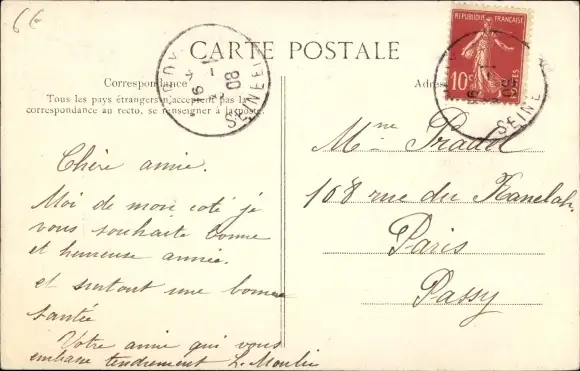 6€
CARTE POSTALE
RÉPUBLIQUE FRANÇAISE
10c
POSTES
Correspondance
Tous les pays étrangers n'acceptent pas la
correspondance au recto, se renseigner à la poste.
SEINE
08
Chère amie.
Moi de mon coté je
vous souhaite bonne
et heureuse année.
et surtout une bonne
santée
Votre amie qui vous
embrasse tendrement L. Moulin
Adres
SEINE
08
Mme Pradel
108 rue du Ranelah.
Paris
Passy